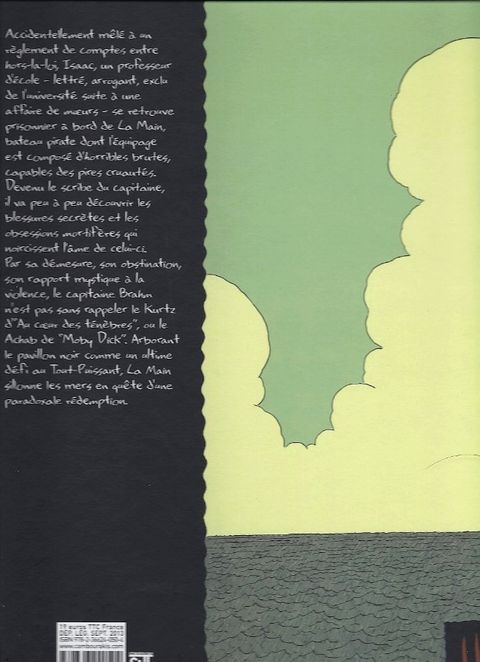 Accidentellement mêlé à un
règlement de comptes entre
hors-la-loi, Isaac, un professeur
d'école - lettré, arrogant, exclu
de l'université suite à une
affaire de mœurs - se retrouve
prisonnier à bord de La Main,
bateau pirate dont l'équipage
est composé d'horribles brutes,
capables des pires cruautés.
Devenu le scribe du capitaine,
il va peu à peu découvrir les
blessures secrètes et les
obsessions mortifères qui
noircissent l'âme de celui-ci.
Par sa démesure, son obstination,
son rapport mystique à la
violence, le capitaine Brahm
n'est pas sans rappeler le Kurtz
d'"Au cœur des ténèbres", ou le
Achab de "Moby Dick". Arborant
le pavillon noir comme un ultime
défi au Tout-Puissant, La Main
sillonne les mers en quête d'une
paradoxale rédemption.
19 euros TTC France
DEP. LEG. SEPT. 2013
ISBN 978-2-36624-050-4
www.cambourakis.com